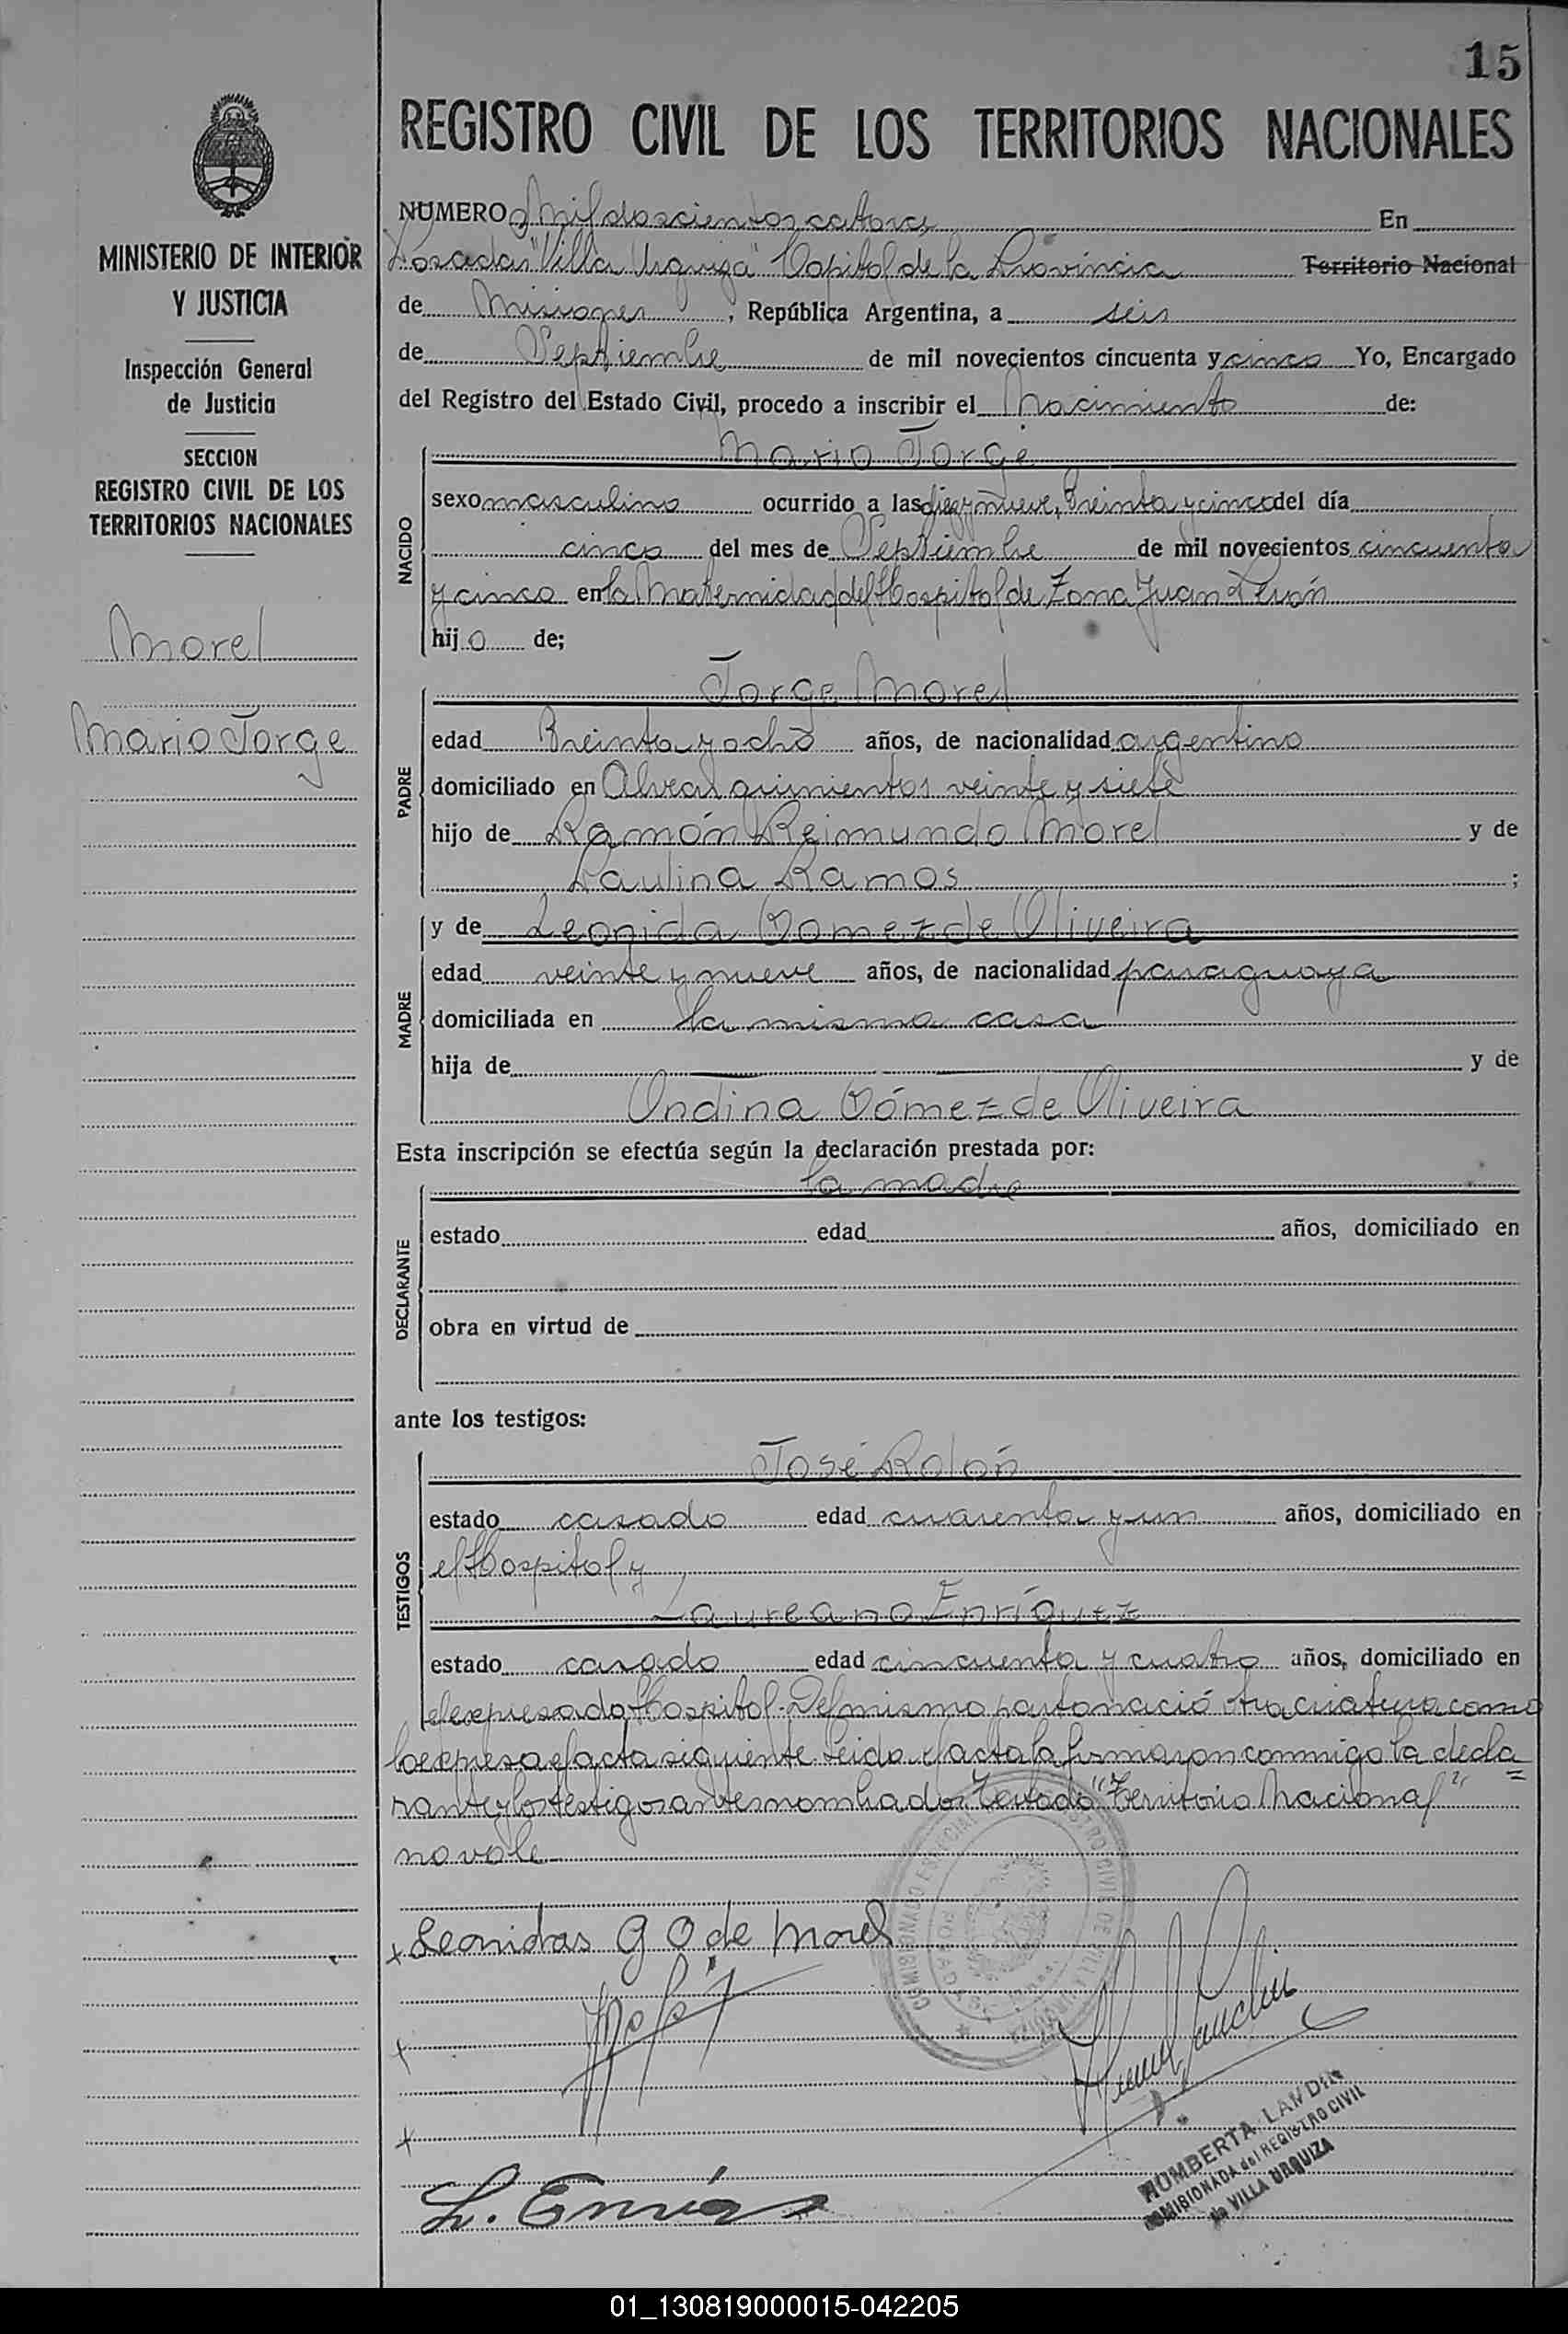 15
REGISTRO CIVIL DE LOS TERRITORIOS NACIONALES
MINISTERIO DE INTERIOR
Y JUSTICIA
Inspección General
de Justicia
SECCION
REGISTRO CIVIL DE LOS
TERRITORIOS NACIONALES
Morel
Mario Jorge
NUMERO Mil doscientos catorce En
Posadas "Villa Urquiza" Capital de la Provincia Territorio Nacional
de Misiones, República Argentina, a seis
de Septiembre de mil novecientos cincuenta y cinco Yo, Encargado
del Registro del Estado Civil, procedo a inscribir el Nacimiento de:
NACIDO
Mario Jorge
sexo masculino ocurrido a las diez y nueve, treinta y cinco del día
cinco del mes de Septiembre de mil novecientos cincuenta
y cinco en la Maternidad del Hospital de Zona Juan Perón
hijo de;
PADRE
Jorge Morel
edad treinta y ocho años, de nacionalidad argentino
domiciliado en Alvear quinientos veinte y siete
hijo de Ramón Reimundo Morel y de
Paulina Ramos ;
MADRE
y de Leonida Gomez de Oliveira
edad veinte y nueve años, de nacionalidad paraguaya
domiciliada en la misma casa
hija de y de
Ondina Gómez de Oliveira
Esta inscripción se efectúa según la declaración prestada por:
DECLARANTE
la madre
estado edad años, domiciliado en
obra en virtud de
ante los testigos:
TESTIGOS
José Rolón
estado casado edad cuarenta y un años, domiciliado en
el Hospital y
Laureano Enríquez
estado casado edad cincuenta y cuatro años, domiciliado en
el expresado Hospital.- Del mismo parto nació otra criatura como
lo expresa el acta siguiente. Leida el acta la firmaron conmigo la decla=
rante y los testigos antes nombrados Testado "Territorio Nacional"
no vale
Leonidas G O de Morel
L. Enríq
HUMBERTA LANDI
COMISIONADA del REGISTRO CIVIL
de VILLA URQUIZA
01_130819000015-042205